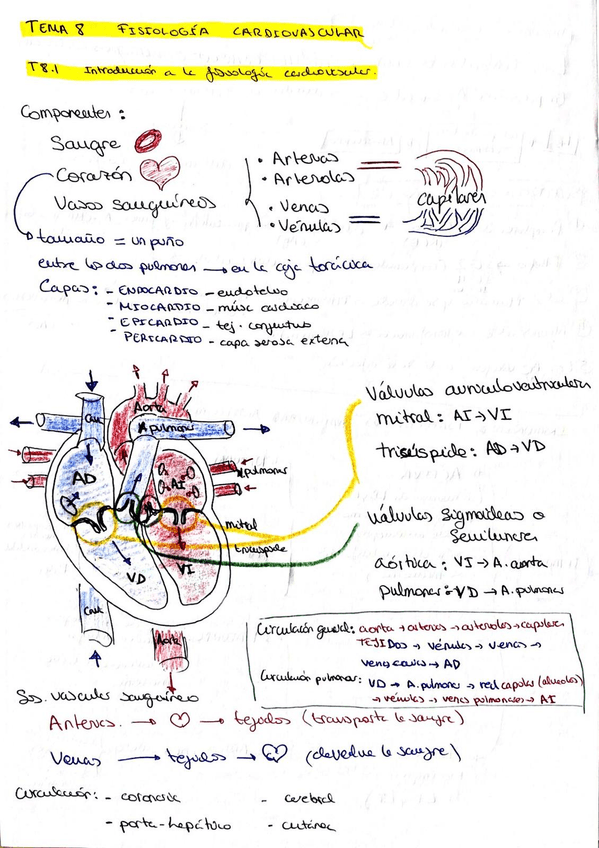 TEMA 8 FISIOLOGÍA CARDIOVASCULAR
T8.1 Introducción a la fisiología cardiovascular.
Componentes:
Sangre
Corazón
Vasos sanguíneos
• Arterias
• Arteriolas
• Venas
• Vénulas
capilares
tamaño = un puño
entre los dos pulmones → en la caja torácica
Capas: - ENDOCARDIO - endotelio
- MIOCARDIO - músc cardiaco
- EPICARDIO - tej. conjuntivo
- PERICARDIO - capa serosa externa
Aorta
A pulmonar
AD
AI
pulmonar
mitral
tricuspide
VD
VI
Cava
Aorta
Válvulas auriculoventriculares
mitral: AI → VI
tricúspide: AD → VD
Válvulas sigmoideas o
Semilunares
aórtica: VI → A. aorta
pulmonar: VD → A. pulmonar
Circulación general: aorta → arterias → arteriolas → capilares
TEJIDOS → vénulas → venas →
vena cava → AD
Circulación pulmonar: VD → A. pulmonar → red capilar (alveolos)
→ vénulas → venas pulmonares → AI
Sis. vascular sanguíneo
Arterias → → tejidos (transporta la sangre)
Venas → tejidos → (devuelve la sangre)
Circulación: - coronaria - cerebral
- porta-hepático - cutánea